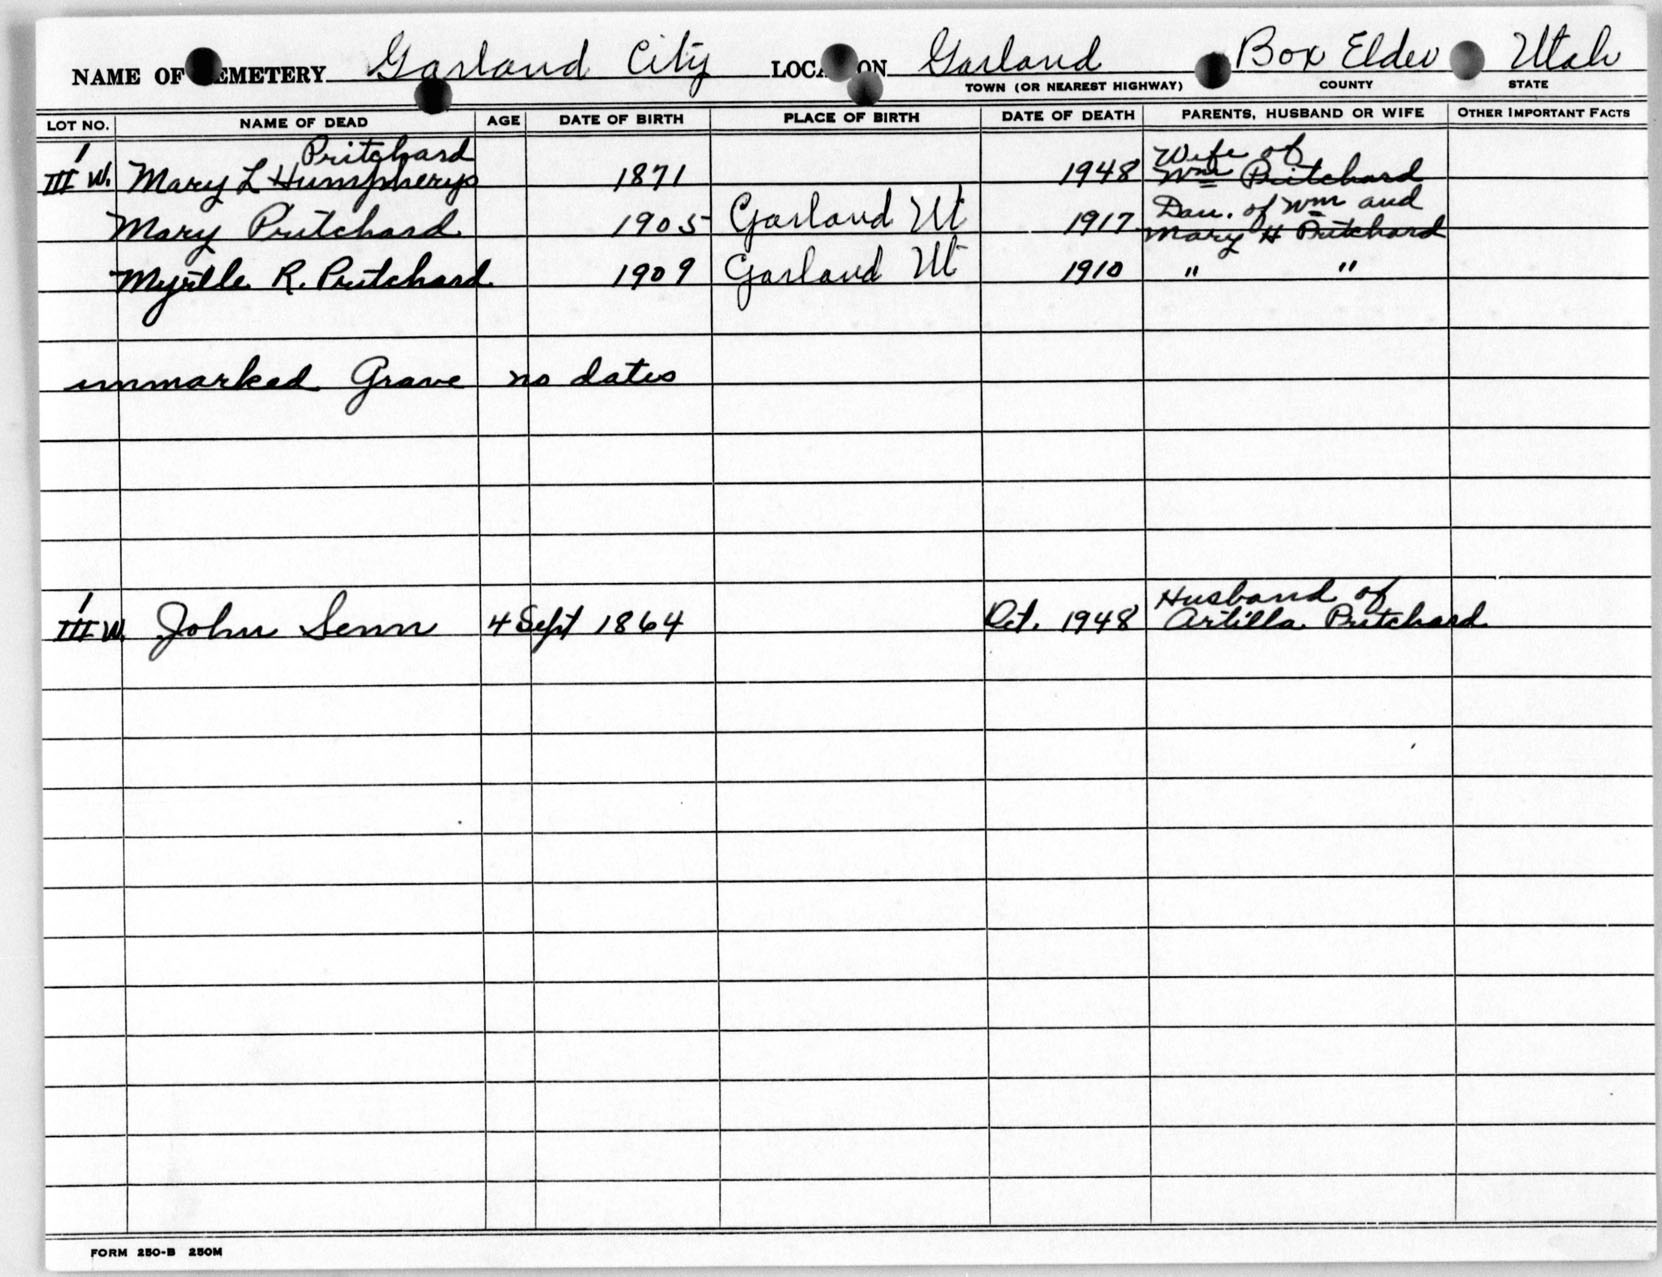 NAME OF CEMETERY Garland City LOCATION Garland Box Elder Utah
TOWN (OR NEAREST HIGHWAY) COUNTY STATE
LOT NO. NAME OF DEAD AGE DATE OF BIRTH PLACE OF BIRTH DATE OF DEATH PARENTS, HUSBAND OR WIFE OTHER IMPORTANT FACTS
1 Pritchard Wife of
III W. Mary L Humpherys 1871 1948 Wm Pritchard
Dau. of Wm and
Mary Pritchard 1905 Garland Ut 1917 Mary H Pritchard
Myrtle R. Pritchard 1909 Garland Ut 1910 " "
unmarked Grave no dates
1 Husband of
III W. John Senn 4 Sept 1864 Oct. 1948 Artilla Pritchard
FORM 250-B 250M